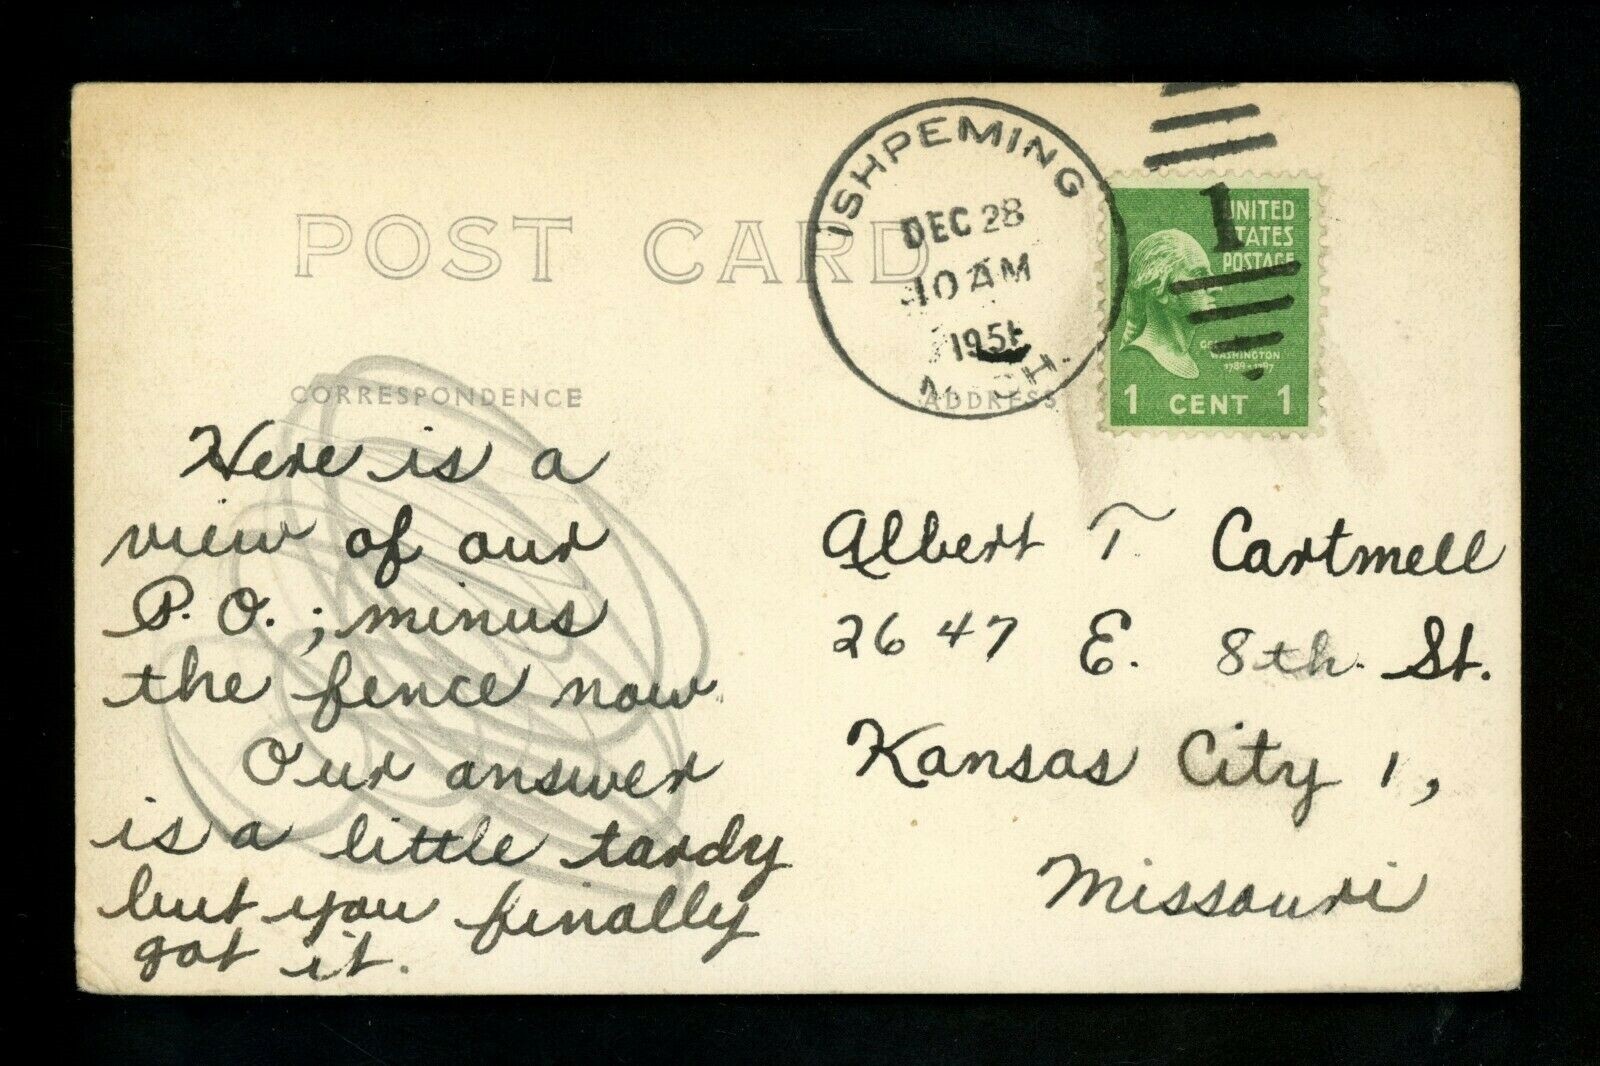 POST CARD
ISHPEMING
DEC 28
10 AM
MICH.
1
UNITED
STATES
POSTAGE
WASHINGTON
1 CENT 1
CORRESPONDENCE
ADDRESS
Here is a
view of our
P.O.; minus
the fence now
Our answer
is a little tardy
but you finally
got it.
Albert T Cartmell
2647 E. 8th. St.
Kansas City 1,
Missouri